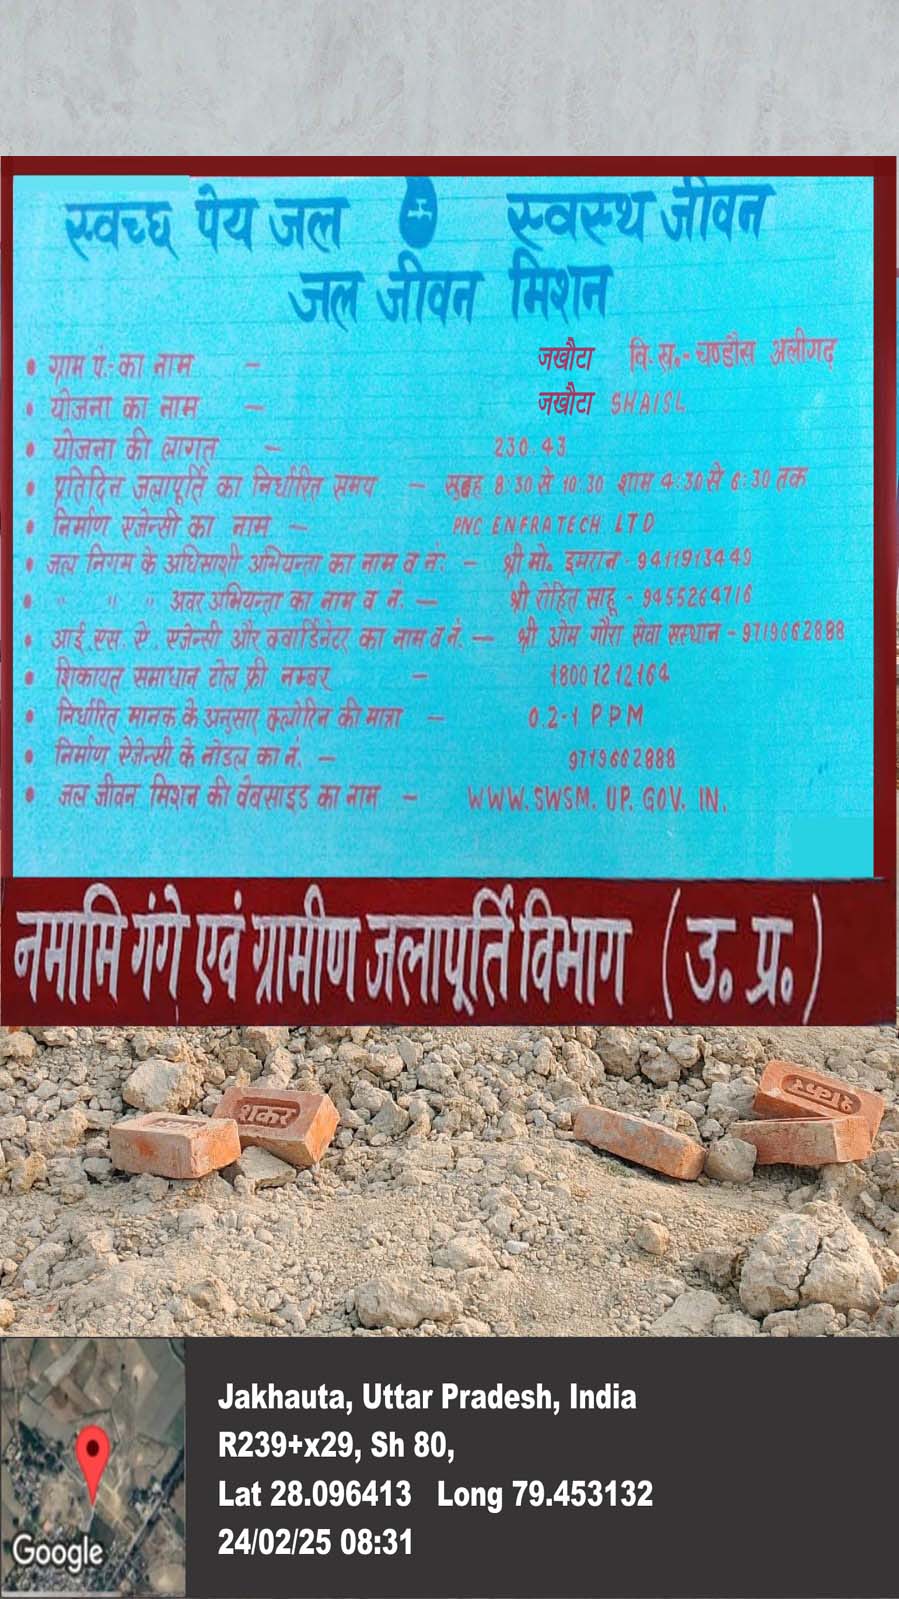 स्वच्छ पेय जल स्वस्थ जीवन
जल जीवन मिशन
• ग्राम पं.- का नाम - जखौटा वि. ख.- चण्डौस अलीगढ़
• योजना का नाम - जखौटा SHAISL
• योजना की लागत - 230.43
• प्रतिदिन जलापूर्ति का निर्धारित समय - सुबह 8:30 से 10:30 शाम 4:30 से 6:30 तक
• निर्माण एजेन्सी का नाम - PNC ENFRATECH LTD
• जल निगम के अधिसाशी अभियन्ता का नाम व नं: - श्री मो. इमरान - 9411913449
• " " " अवर अभियन्ता का नाम व नं. - श्री रोहित साहू - 9455264716
• आई.एस. ऐ. एजेन्सी और क्वार्डिनेटर का नाम व नं. - श्री ओम गौरा सेवा सस्थान - 9719662888
• शिकायत समाधान टोल फ्री नम्बर - 18001212164
• निर्धारित मानक के अनुसार क्लोरिन की मात्रा - 0.2-1 PPM
• निर्माण ऐजेन्सी के नोडल का नं. - 9719662888
• जल जीवन मिशन की वेबसाइड का नाम - WWW.SWSM.UP.GOV.IN.
नमामि गंगे एवं ग्रामीण जलापूर्ति विभाग (उ. प्र.)
शंकर
शंकर
Jakhauta, Uttar Pradesh, India
R239+x29, Sh 80,
Lat 28.096413 Long 79.453132
24/02/25 08:31
Google